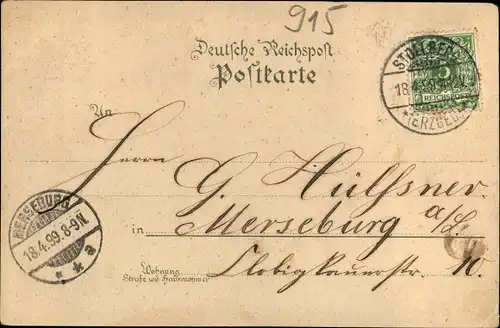 915
Deutsche Reichspost
Postkarte
STOLLBERG
18.4.99
* (ERZGEB.) *
5
An
Herrn G. Hülssner
MERSEBURG
18.4.99.8-9N.
* * a
in Merseburg a/S.
Wohnung
Straße und Hausnummer
Clobigkauerstr. 10.